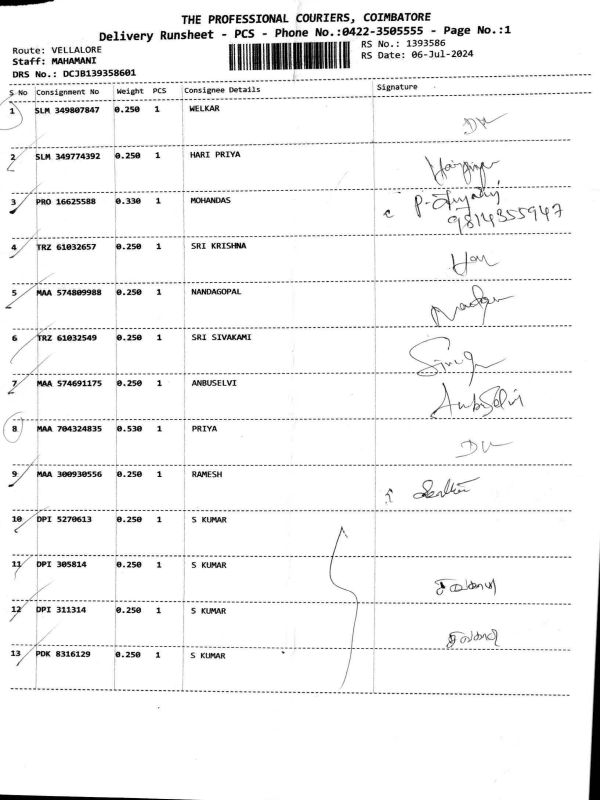 THE PROFESSIONAL COURIERS, COIMBATORE
Delivery Runsheet - PCS - Phone No.:0422-3505555 - Page No.:1
Route: VELLALORE RS No.: 1393586
Staff: MAHAMANI RS Date: 06-Jul-2024
DRS No.: DCJB139358601
S No Consignment No Weight PCS Consignee Details Signature
1 SLM 349807847 0.250 1 WELKAR
2 SLM 349774392 0.250 1 HARI PRIYA
3 PRO 16625588 0.330 1 MOHANDAS
9814355947
4 TRZ 61032657 0.250 1 SRI KRISHNA
5 MAA 574809988 0.250 1 NANDAGOPAL
6 TRZ 61032549 0.250 1 SRI SIVAKAMI
7 MAA 574691175 0.250 1 ANBUSELVI
AnbuSelvi
8 MAA 704324835 0.530 1 PRIYA
9 MAA 300930556 0.250 1 RAMESH
10 DPI 5270613 0.250 1 S KUMAR
11 DPI 305814 0.250 1 S KUMAR
12 DPI 311314 0.250 1 S KUMAR
13 PDK 8316129 0.250 1 S KUMAR